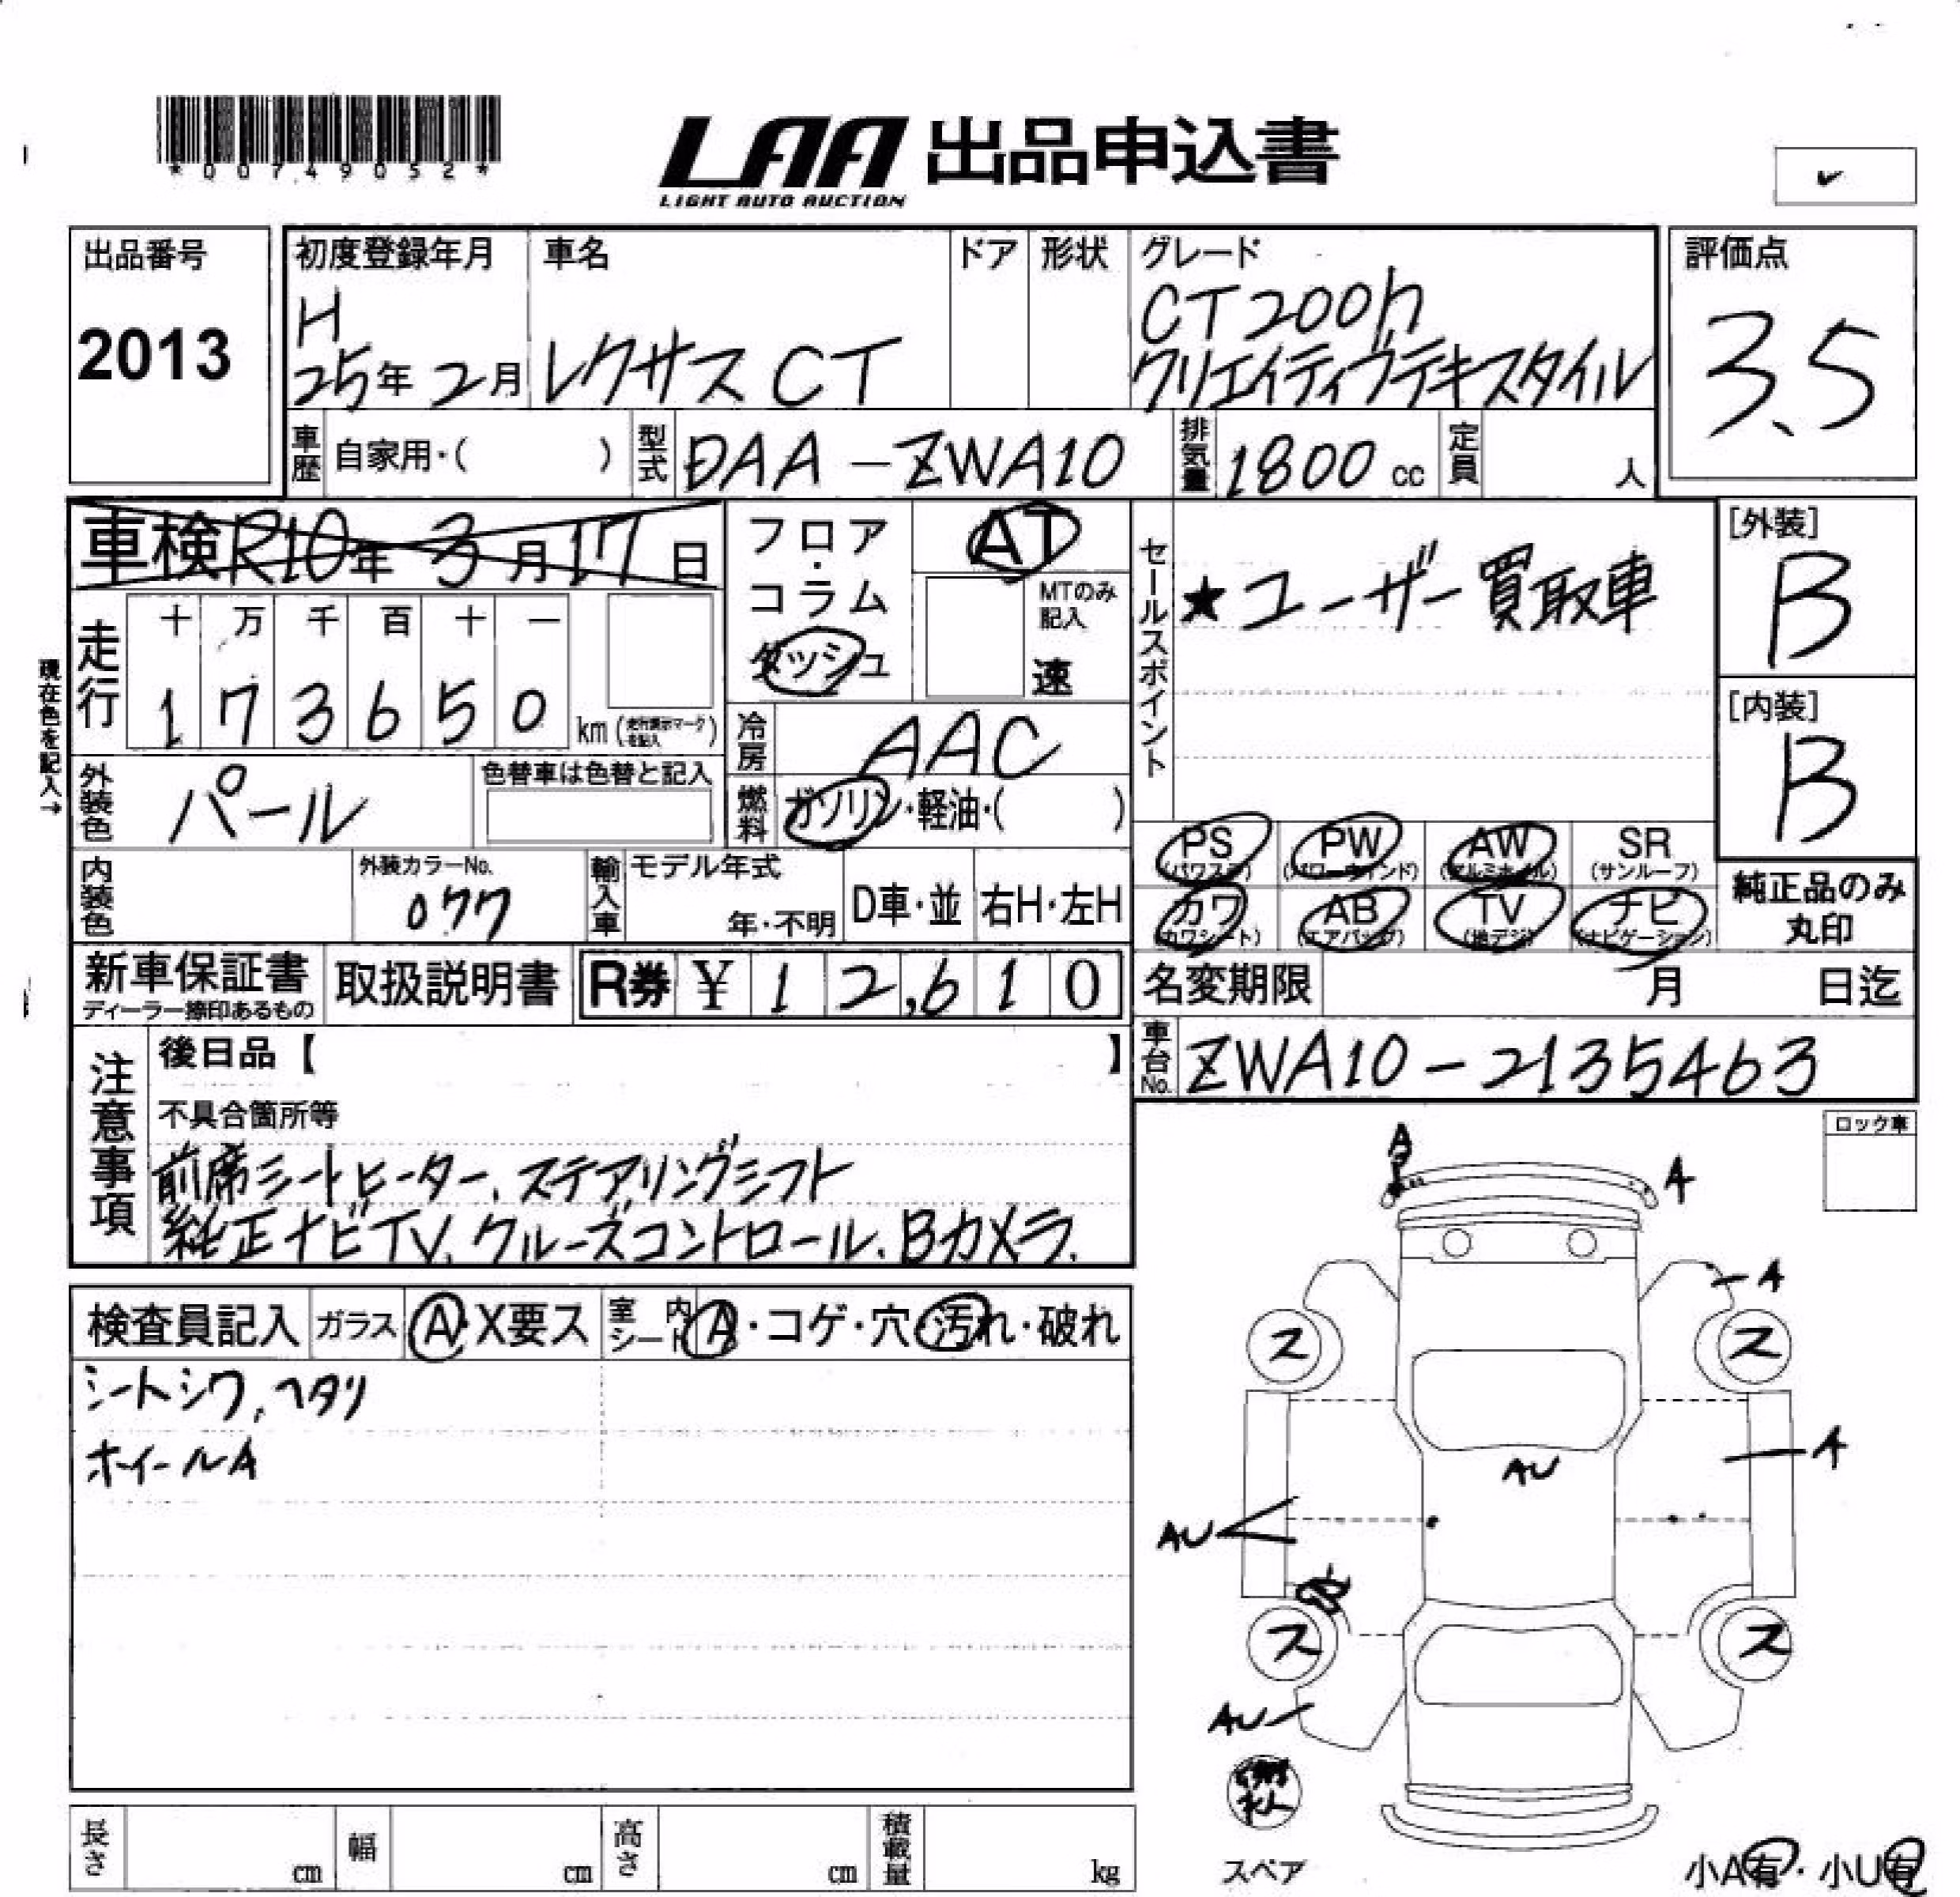 *00749052*
LAA 出品申込書
LIGHT AUTO AUCTION
出品番号
2013
初度登録年月
H
25年 2月
車名
レクサス CT
ドア
形状
グレード
CT200h
クリエイティブテキスタイル
評価点
3.5
車歴 自家用・( )
型式 DAA-ZWA10
排気量 1800 cc
定員 人
車検 R10年 3月17日
走行
十 万 千 百 十 一
1 7 3 6 5 0 km
現在色を記入→
フロア・コラム
ダッシュ
AT
MTのみ記入
速
冷房 AAC
燃料 ガソリン・軽油・( )
セールスポイント
★ユーザー買取車
[外装]
B
[内装]
B
外装色 パール
色替車は色替と記入
内装色
外装カラーNo.
077
輸入車
モデル年式
年・不明
D車・並
右H・左H
PS (パワステ)
PW (パワーウインド)
AW (アルミホイル)
SR (サンルーフ)
カワ (カワシート)
AB (エアバッグ)
TV (地デジ)
ナビ (ナビゲーション)
純正品のみ
丸印
新車保証書
ディーラー捺印あるもの
取扱説明書
R券 ¥ 12,610
名変期限 月 日迄
車台No. ZWA10-2135463
注意事項
後日品【 】
不具合箇所等
前席シートヒーター、ステアリングシフト
純正ナビTV、クルーズコントロール、Bカメラ、
ロック車
検査員記入
ガラス A・X要ス
室内シート A・コゲ・穴・汚れ・破れ
シートシワ、ヘタリ
ホイールA
A
A
A
ス
ス
A
AU
AU
ス
ス
AU
スペア
小A有・小U有
長さ cm
幅 cm
高さ cm
積載量 kg